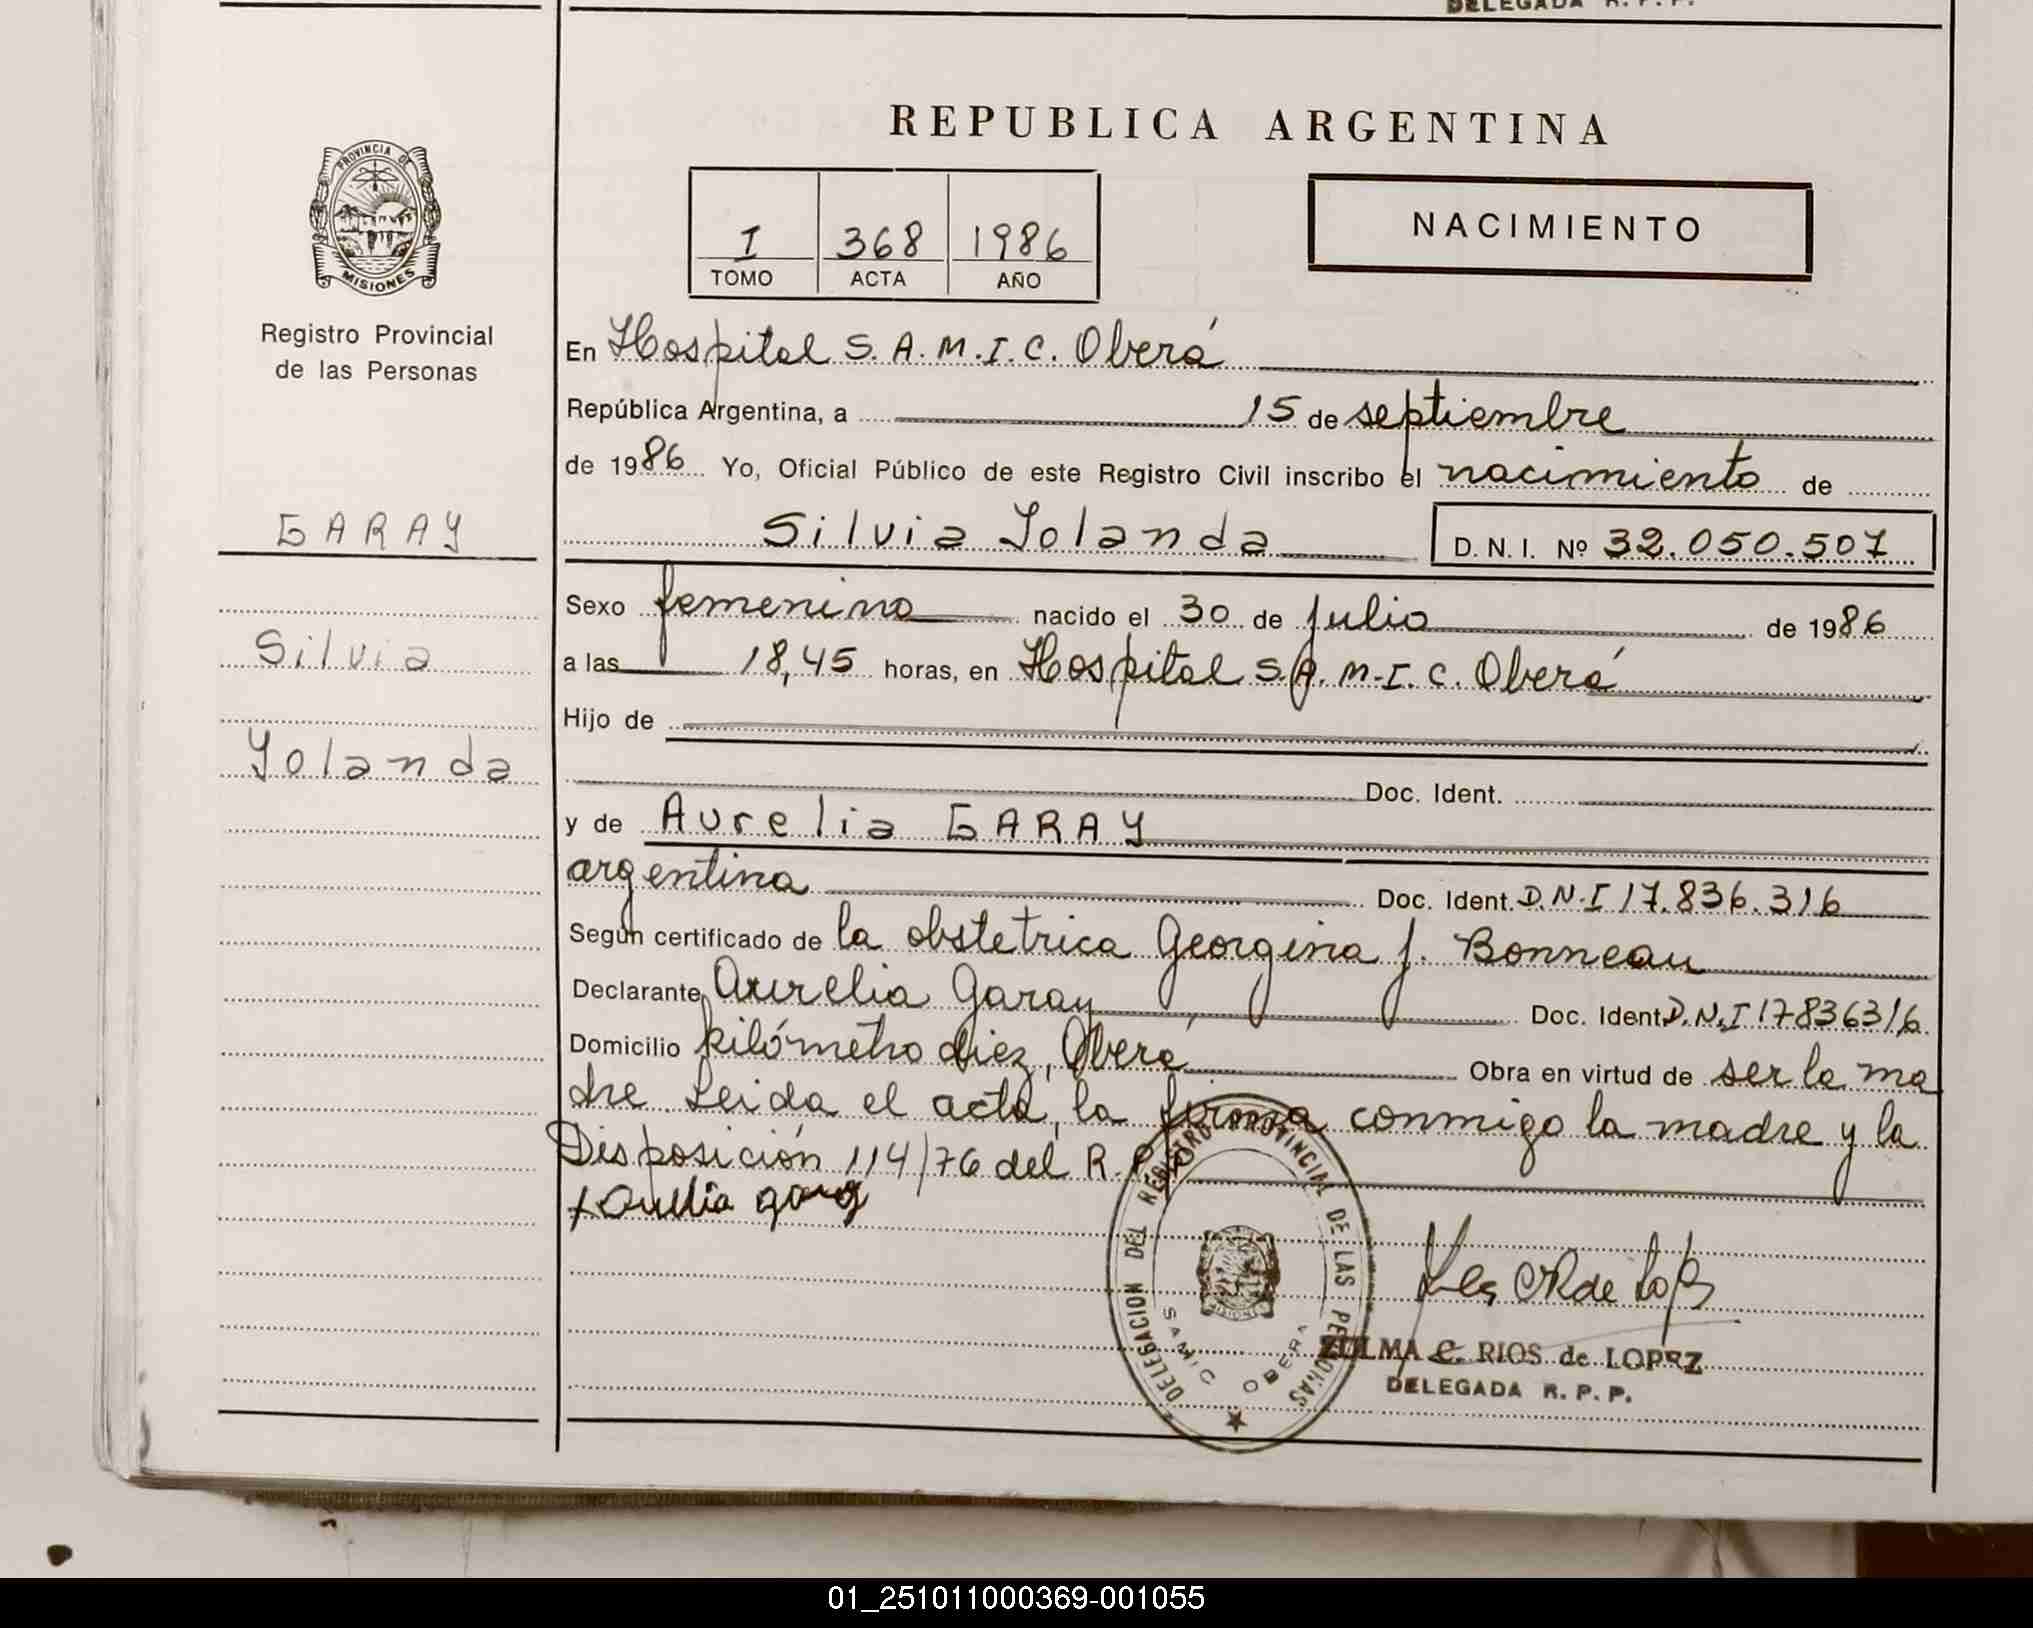 DELEGADA R. P. P.
REPUBLICA ARGENTINA
PROVINCIA DE
MISIONES
Registro Provincial
de las Personas
I 368 1986
TOMO ACTA AÑO
NACIMIENTO
En Hospital S. A. M. I. C. Oberá
República Argentina, a 15 de septiembre
de 1986 Yo, Oficial Público de este Registro Civil inscribo el nacimiento de
GARAY
Silvia Yolanda D. N. I. Nº 32.050.507
Sexo femenino nacido el 30 de julio de 1986
Silvia
a las 18,45 horas, en Hospital S. A. M. I. C. Oberá
Hijo de
Yolanda
Doc. Ident.
y de Aurelia GARAY
argentina Doc. Ident. D.N.I 17.836.316
Según certificado de la obstetrica Georgina J. Bonneau
Declarante Aurelia Garay Doc. Ident D.N.I 17836316
Domicilio kilómetro diez, Oberá Obra en virtud de ser la ma
dre. Leida el acta, la firma conmigo la madre y la
Disposición 114/76 del R. P. P.
x Aurelia garay
DELEGACION DEL REGISTRO PROVINCIAL DE LAS PERSONAS
SAMIC OBERA
ZULMA C. RIOS de LOPEZ
DELEGADA R. P. P.
01_251011000369-001055